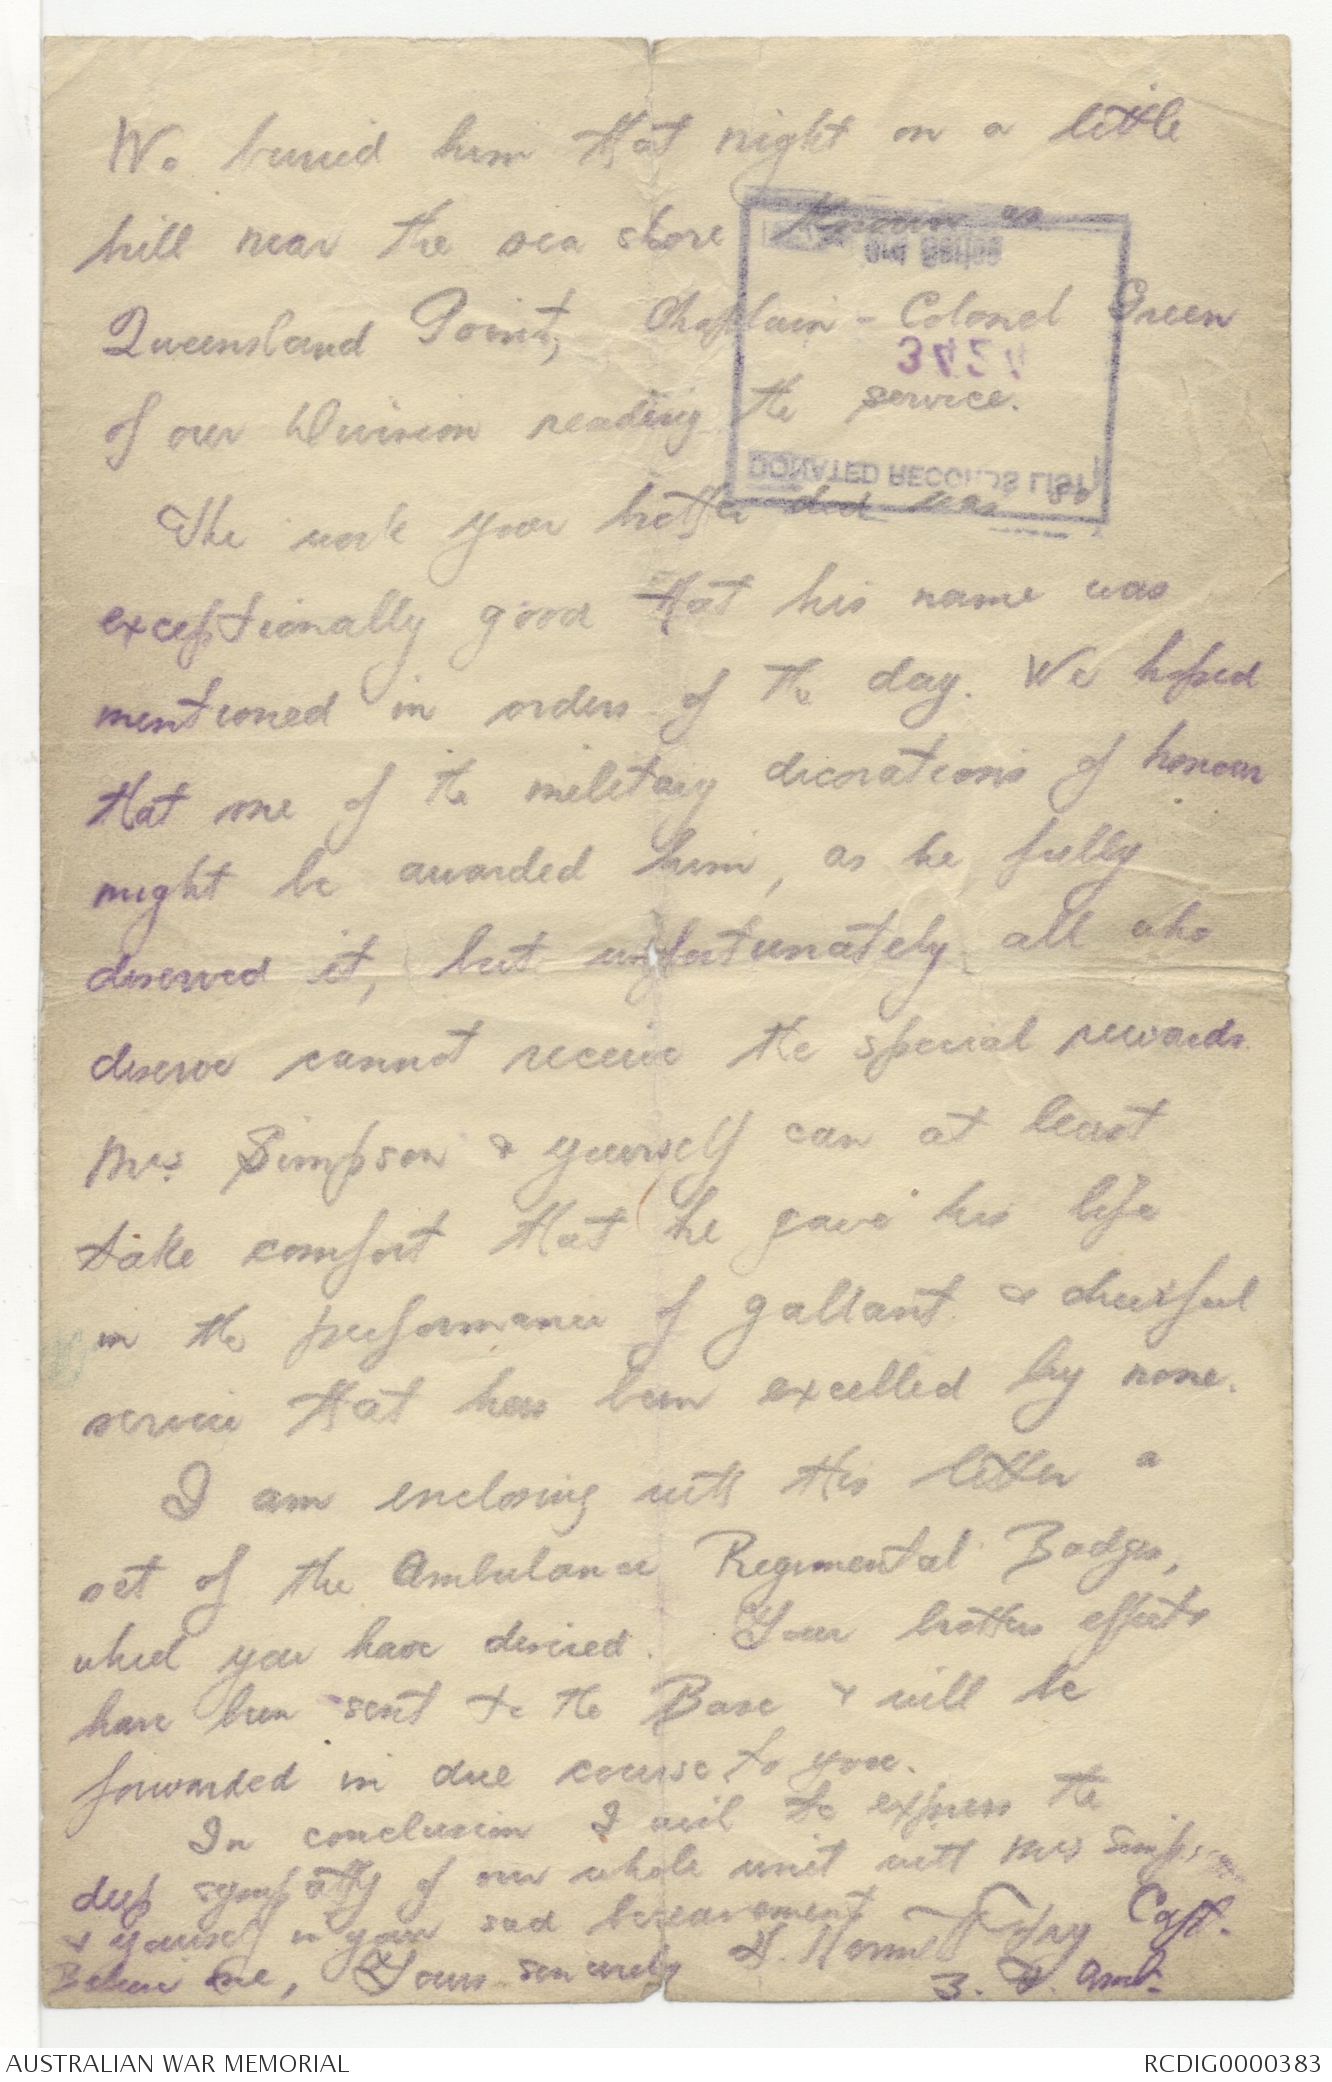 We buried him that night on a little
hill near the sea shore known as
Queensland Point, Chaplain - Colonel Green
of our Division reading the service.
The work your brother did was so
exceptionally good that his name was
mentioned in orders of the day. We hoped
that one of the military decorations of honour
might be awarded him, as he fully
deserved it, but unfortunately all who
deserve cannot receive the special rewards.
Mrs Simpson & yourself can at least
take comfort that he gave his life
in the performance of gallant & cheerful
service that has been excelled by none.
I am enclosing with this letter a
set of the Ambulance Regimental Badges,
which you have desired. Your brothers effects
have been sent to the Base & will be
forwarded in due course to you.
In conclusion I wish to express the
deep sympathy of our whole unit with Mrs Simpson
& yourself in your sad bereavement
Believe me, Yours sincerely H. Capt.
3. F. Amb.
3rd Series
3424
DONATED RECORDS LIST
AUSTRALIAN WAR MEMORIAL
RCDIG0000383